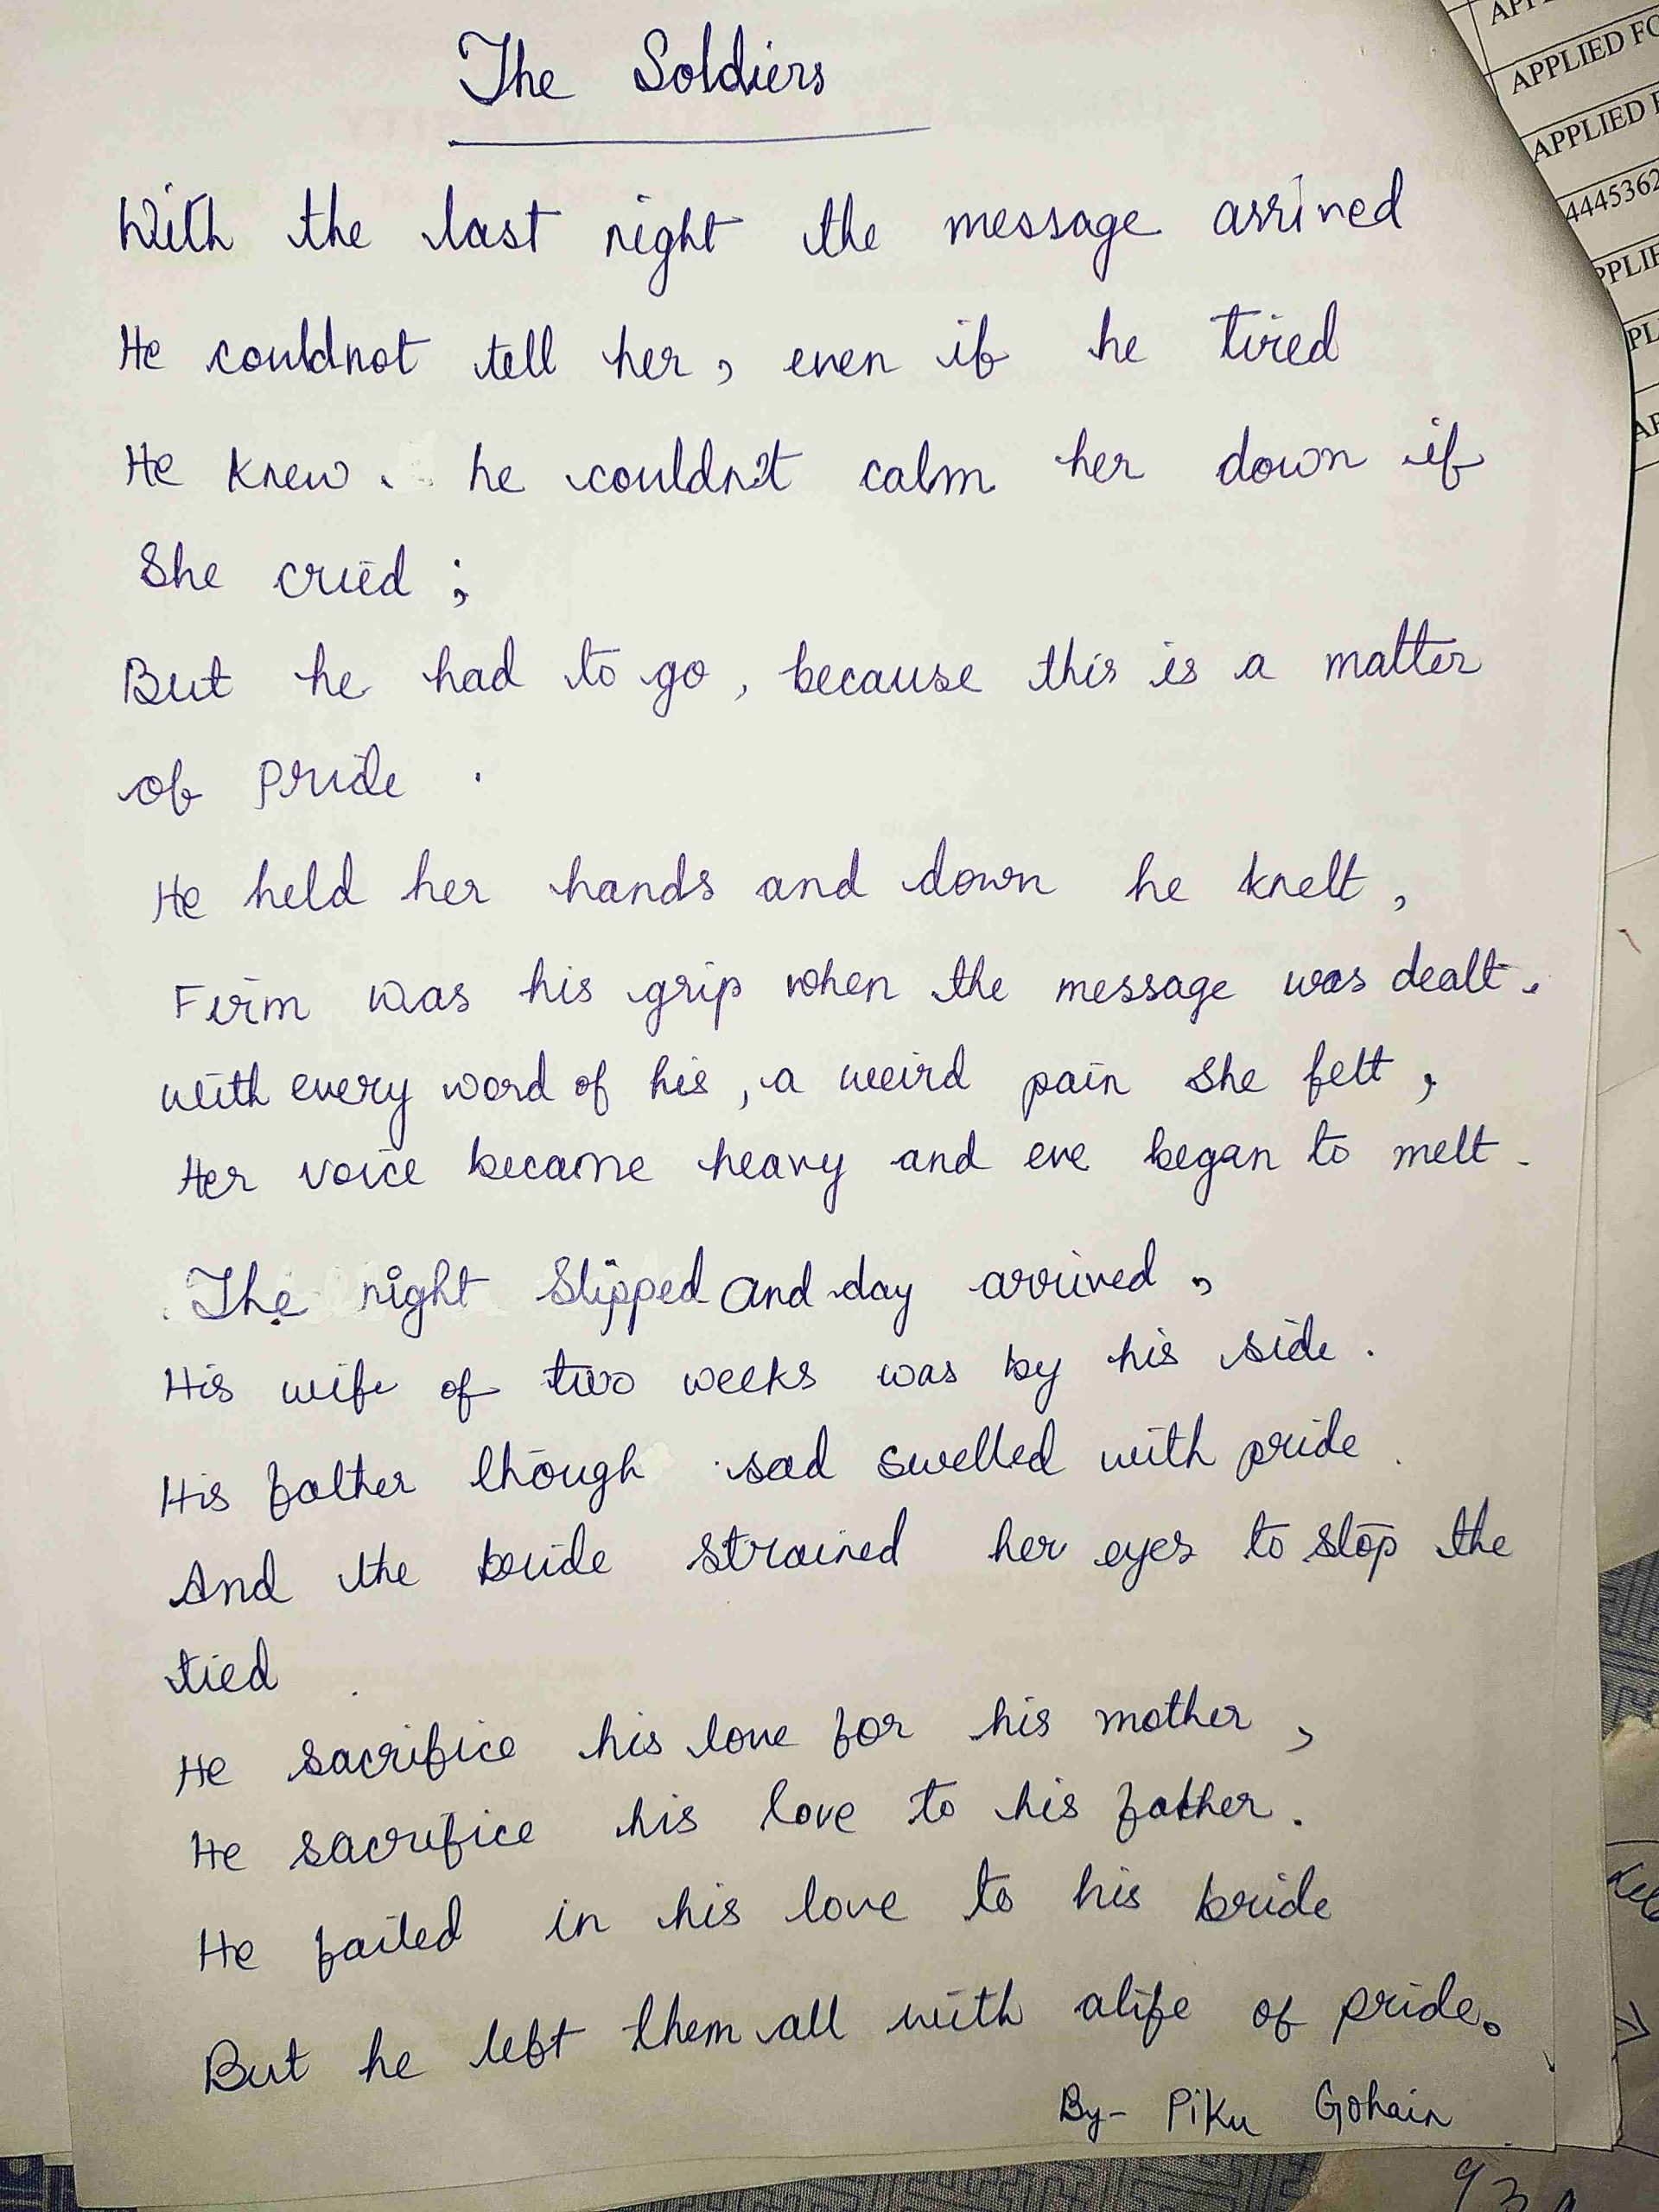 The Soldiers
With the last night the message arrived
He couldnot tell her, even if he tired
He knew. he couldn't calm her down if
She cried ;
But he had to go, because this is a matter
of pride .
He held her hands and down he knelt,
Firm was his grip when the message was dealt.
with every word of his, a weird pain she felt,
Her voice became heavy and eve began to melt.
The night Slipped and day arrived,
His wife of two weeks was by his side.
His father though sad swelled with pride.
And the bride strained her eyes to stop the
tied .
He sacrifice his love for his mother,
He sacrifice his love to his father.
He failed in his love to his bride
But he left them all with alife of pride.
By- Piku Gohain
APPLIED
APPLIED
4445362
93